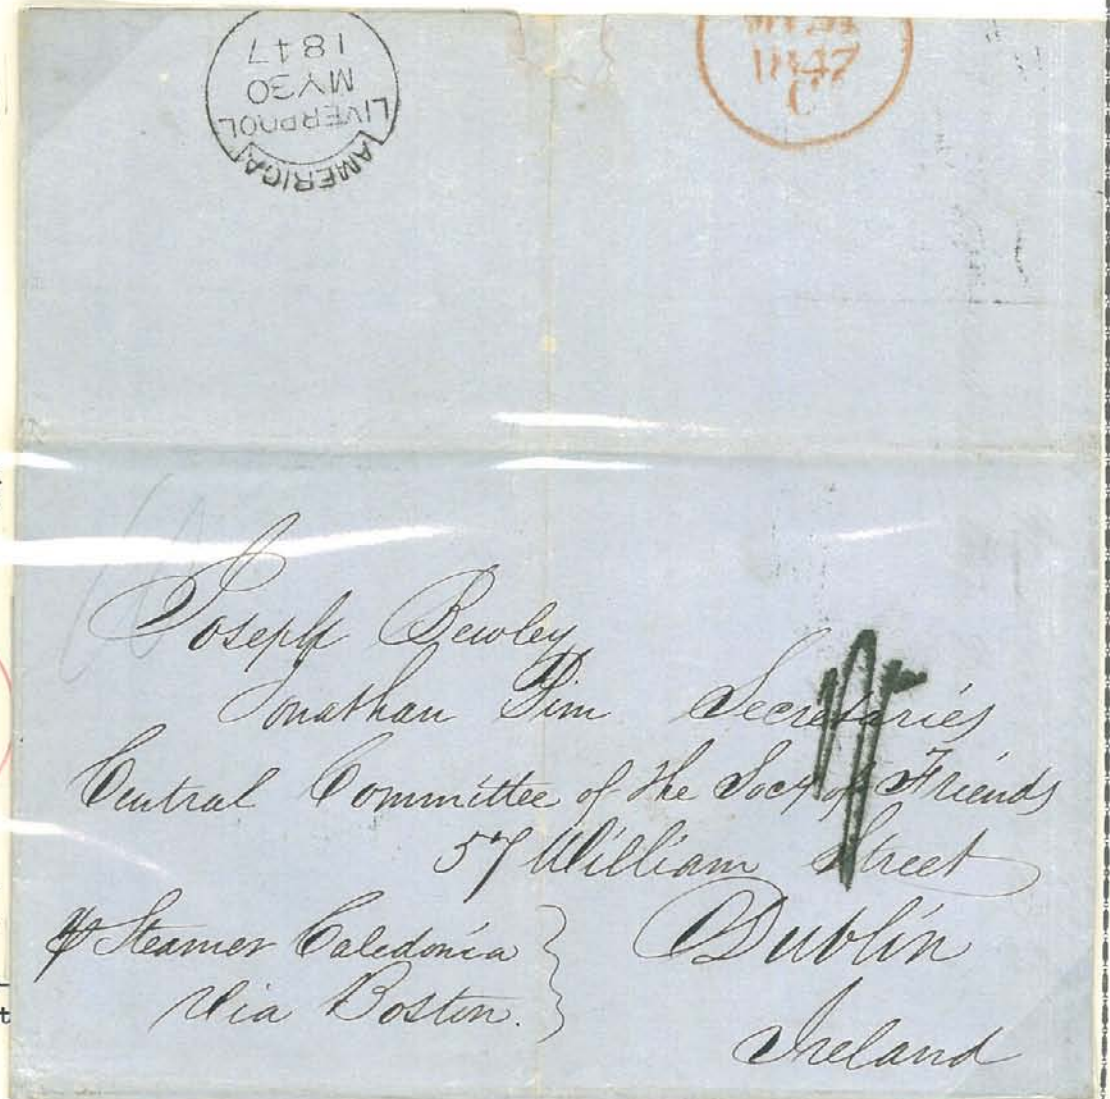 AMERICA
LIVERPOOL
MY30
1847
1847
C
Joseph Bewley
Jonathan Pim Secretaries
Central Committee of the Socy of Friends
57 William Street
Dublin
Ireland
℔ Steamer Caledonia
Via Boston.
t